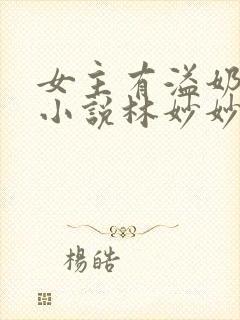 女主有溢奶
小說林妙妙
楊皓